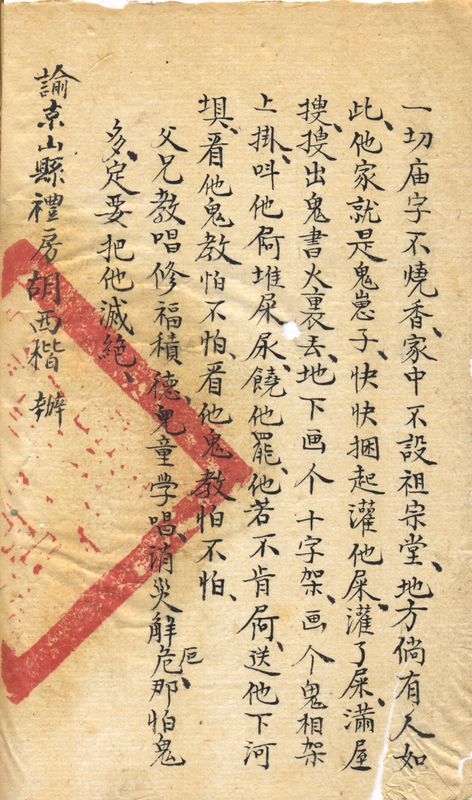 一切庙字不燒香、家中不設祖宗堂、地方倘有人如
此、他家就是鬼崽子、快快捆起灌他屎、灌了屎、滿屋
搜、搜出鬼書火裏去、地下画个十字架、画个鬼相架
上掛、呌他屙堆屎尿、饒他罷、他若不肯屙、送他下河
埧、看他鬼教怕不怕、看他鬼教怕不怕、
父兄教唱修福積德、兒童学唱、消災解危厄、那怕鬼
多、定要把他滅絶、
諭京山縣禮房胡西楷 辦